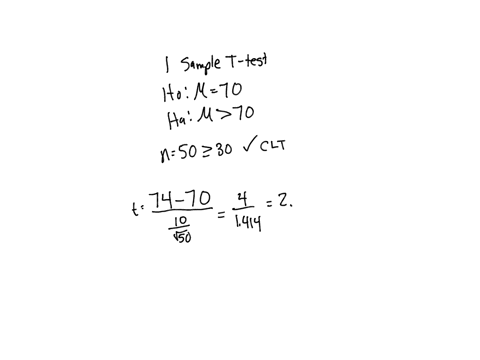 1 Sample T-test
Ho: μ=70
Ha: μ>70
n=50 ≥30 ✓ CLT
t= 74-70 / (10/√50) = 4/1.414 = 2.